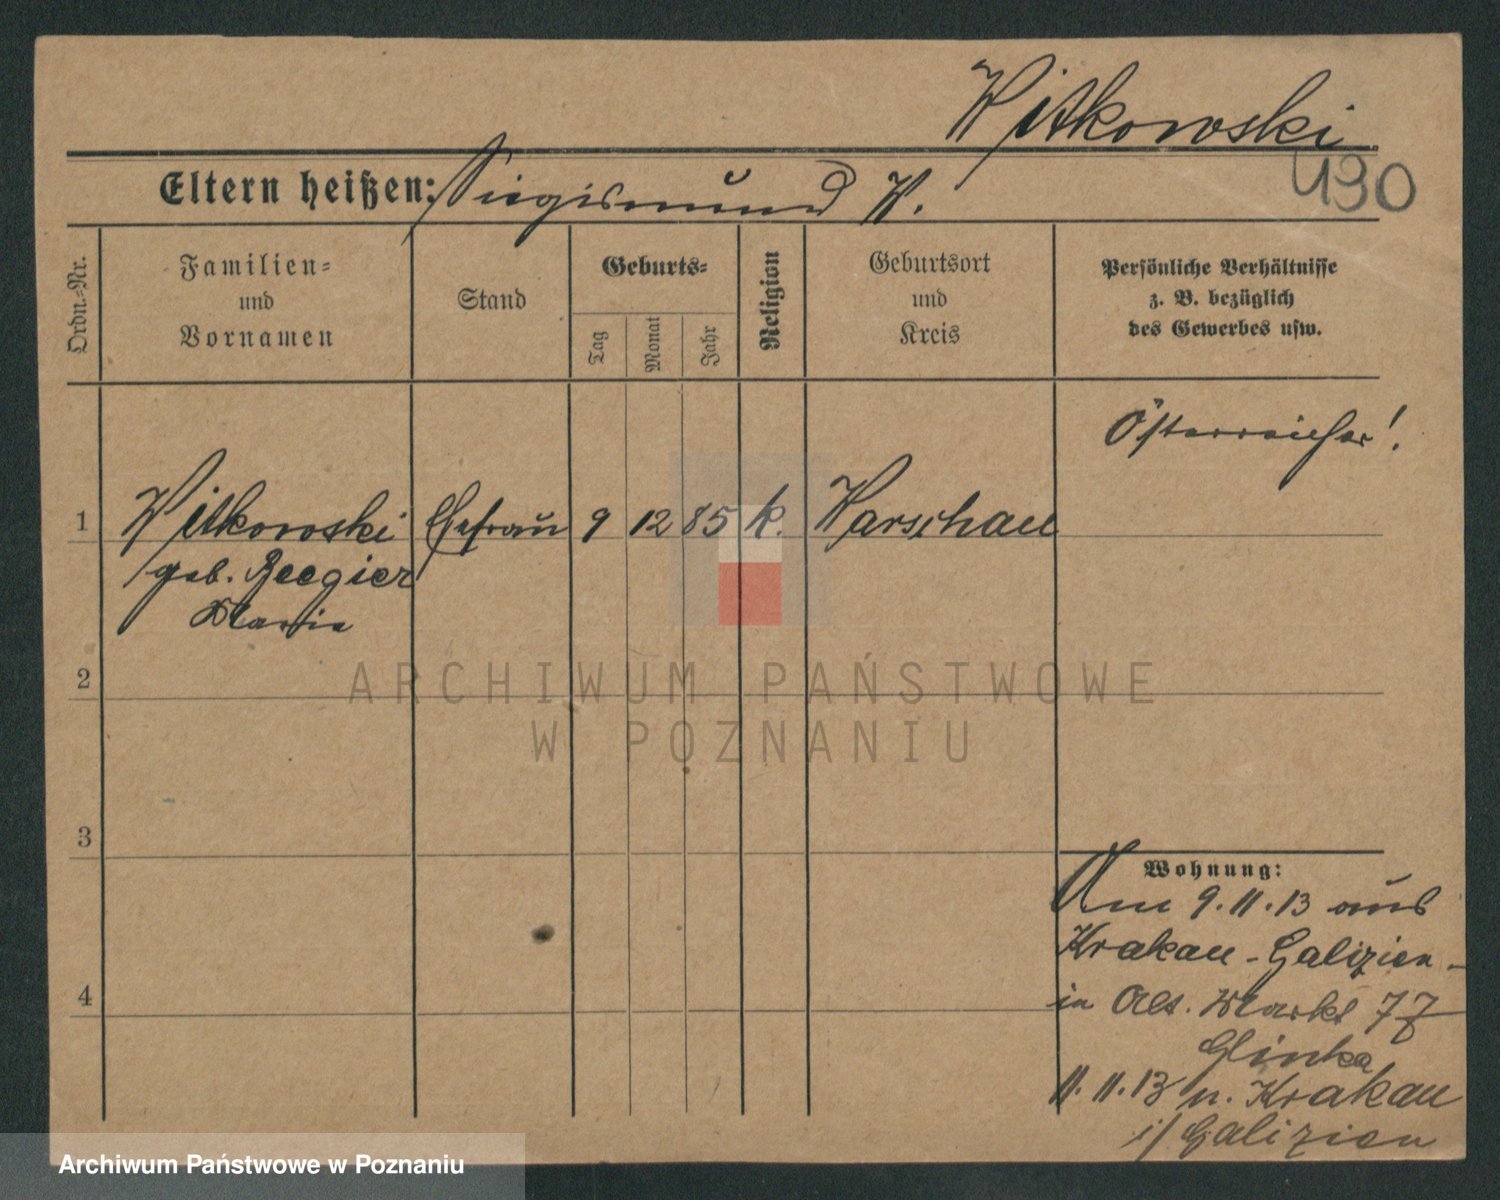 Witkowski
490
Eltern heißen: Siegismund W.
Ordn.-Nr.
Familien-
und
Vornamen
Stand
Geburts-
Tag
Monat
Jahr
Religion
Geburtsort
und
Kreis
Persönliche Verhältnisse
z. B. bezüglich
des Gewerbes usw.
Österreicher!
1 Witkowski Ehefrau 9 12 85 k. Warschau
geb. Reegier
Maria
2
ARCHIWUM PAŃSTWOWE
W POZNANIU
3
Wohnung:
Am 9.11.13 aus
Krakau - Galizien -
in Alt. Markt 77
Glinka
4
11.11.13 n. Krakau
i/ Galizien
Archiwum Państwowe w Poznaniu